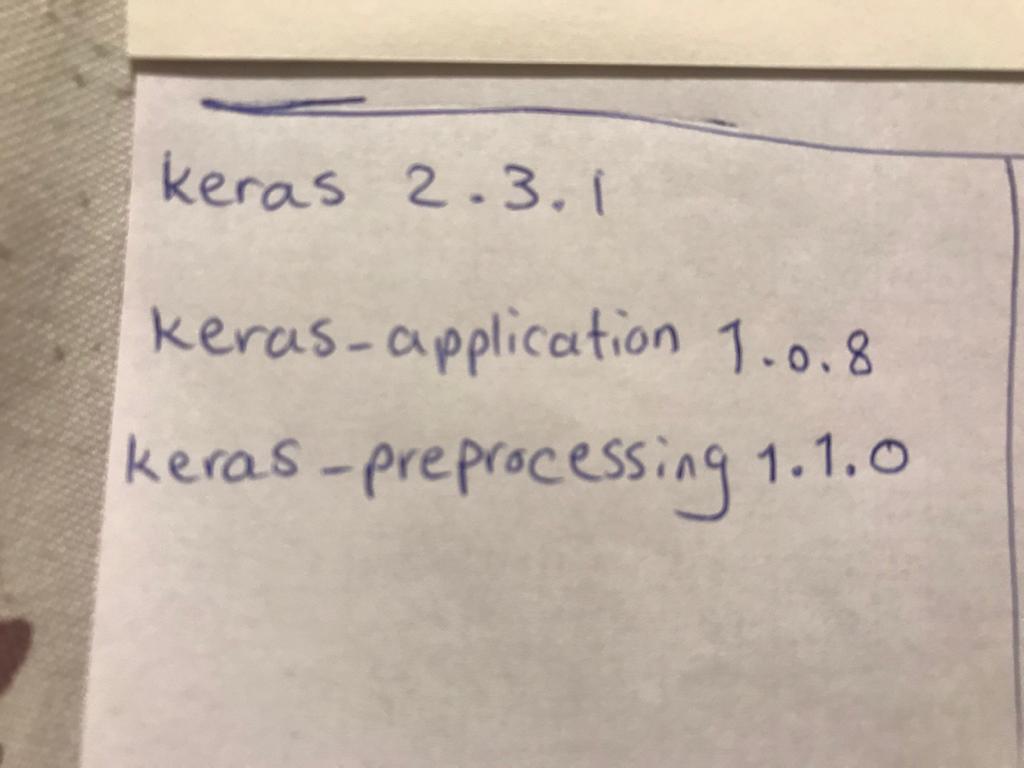 keras 2.3.1
keras-application 1.0.8
keras-preprocessing 1.1.0